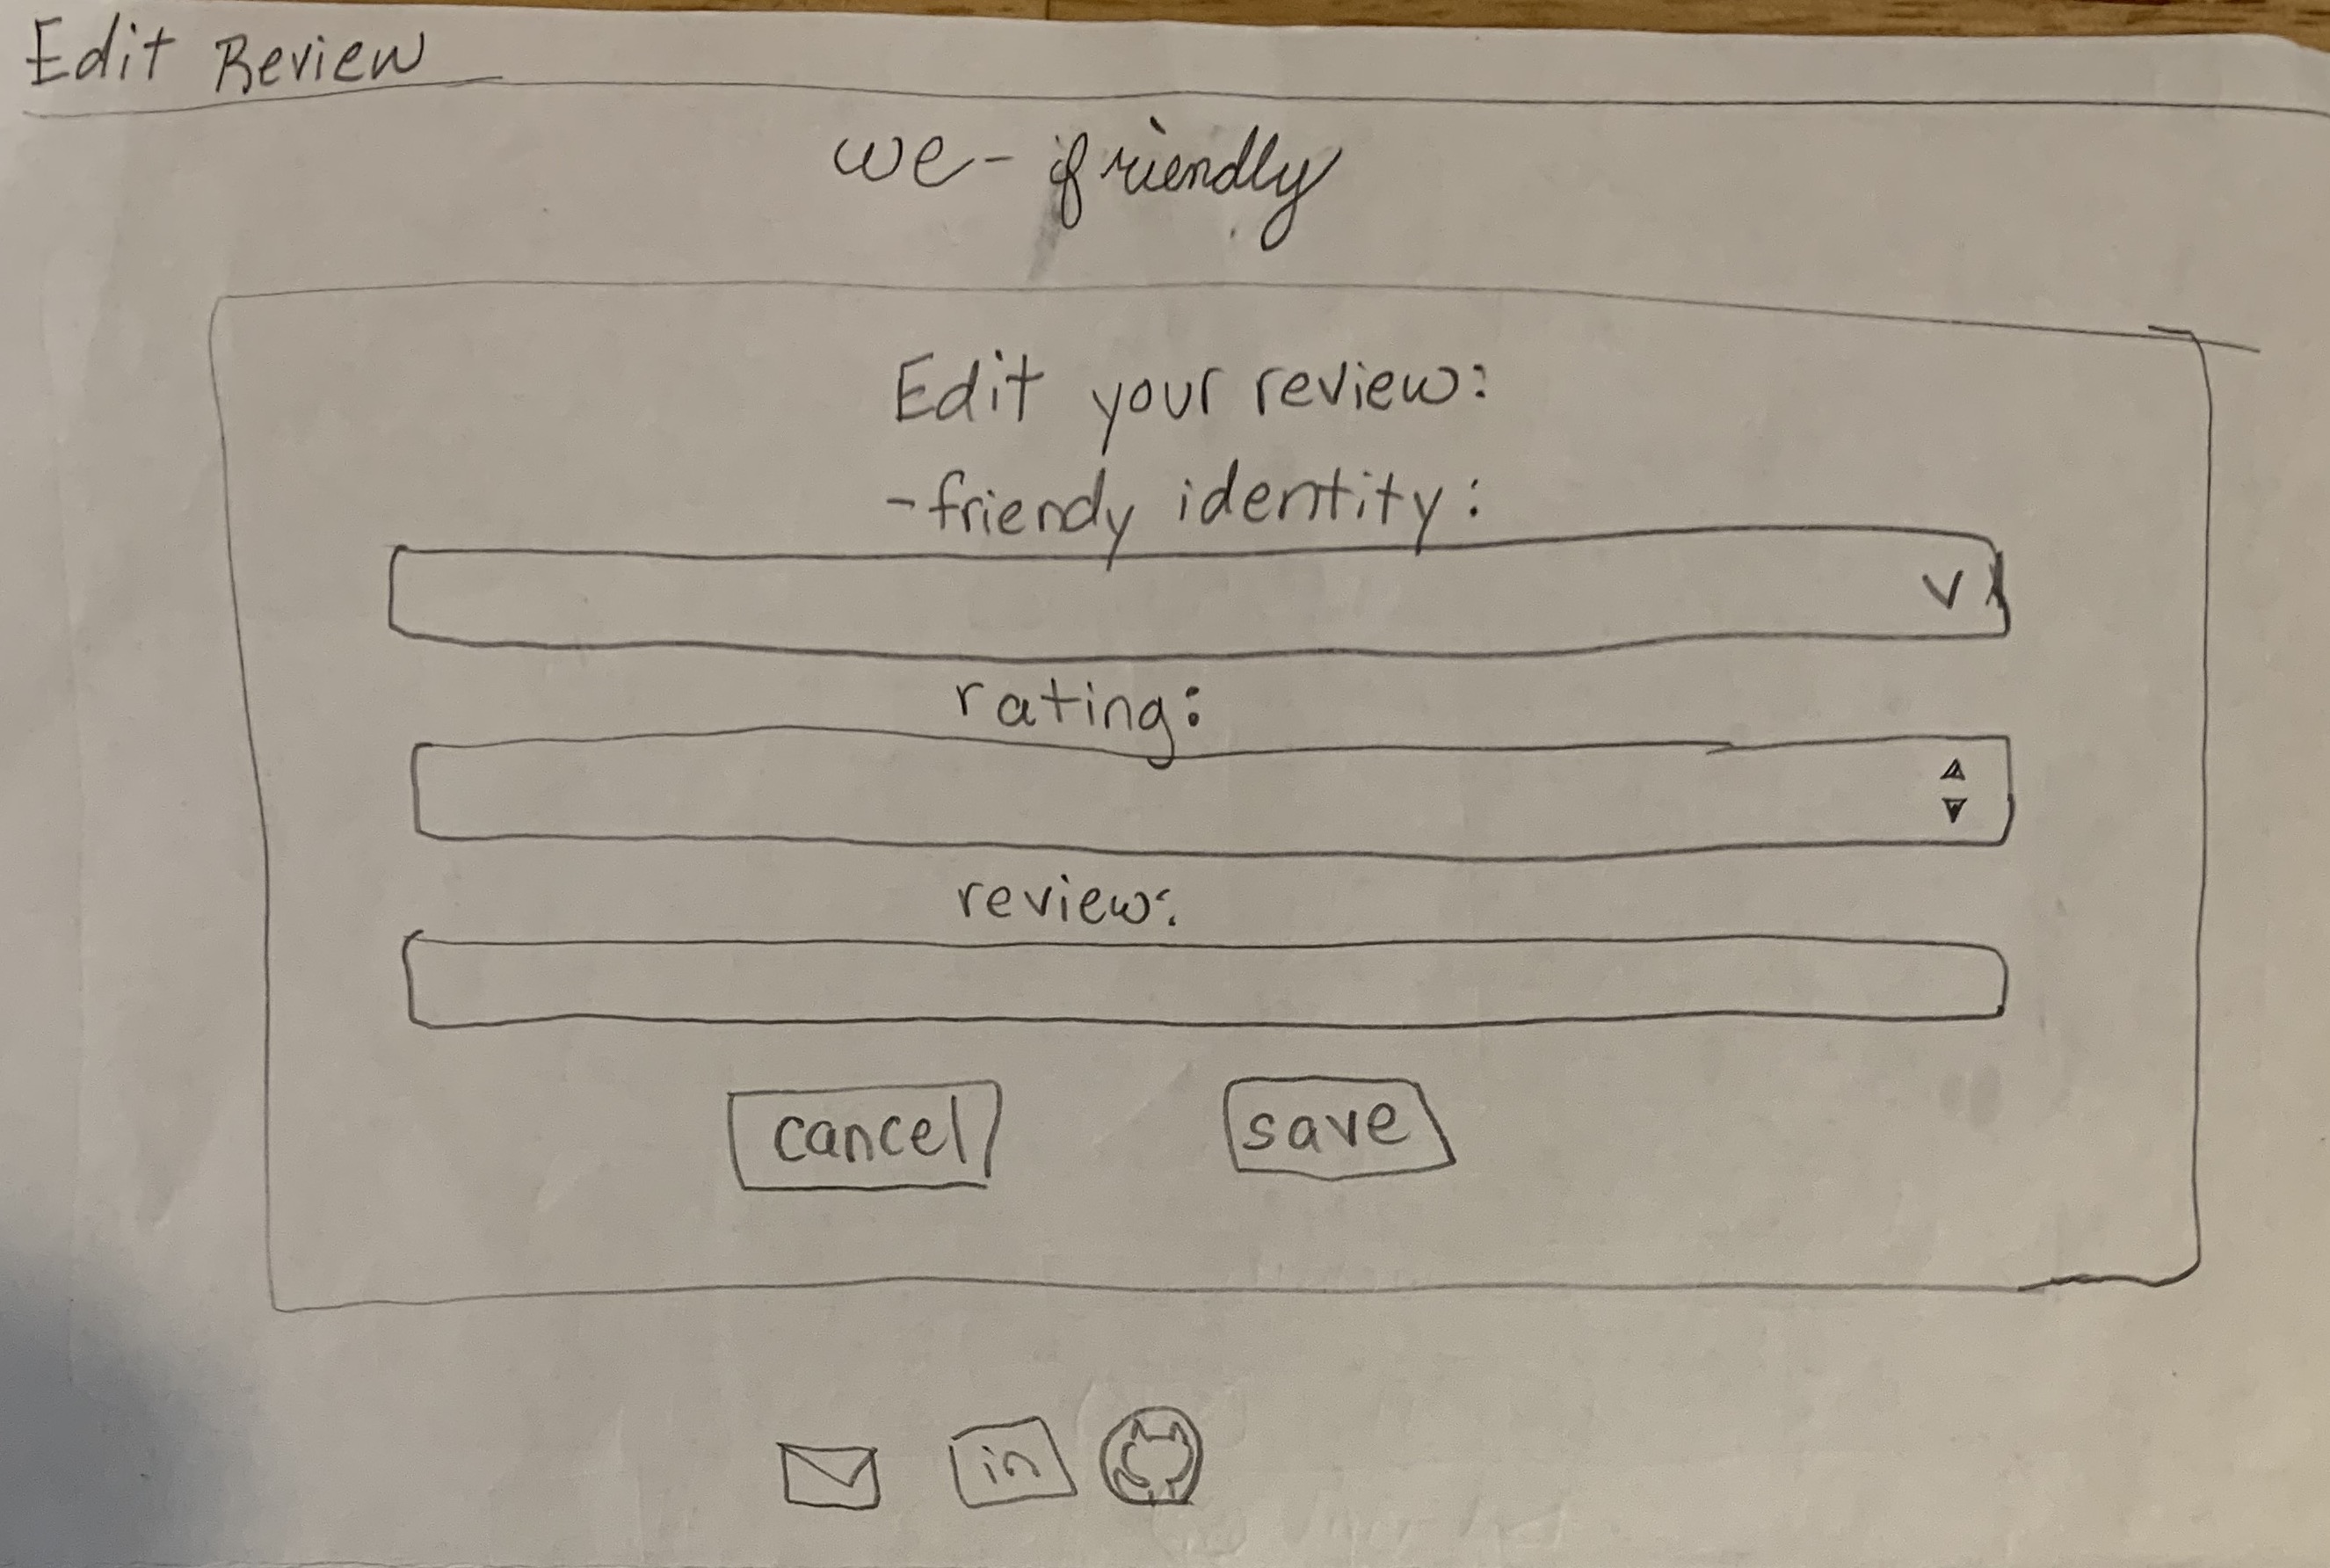 Edit Review
we-friendly
Edit your review:
-friendy identity:
rating:
review:
cancel
save
in